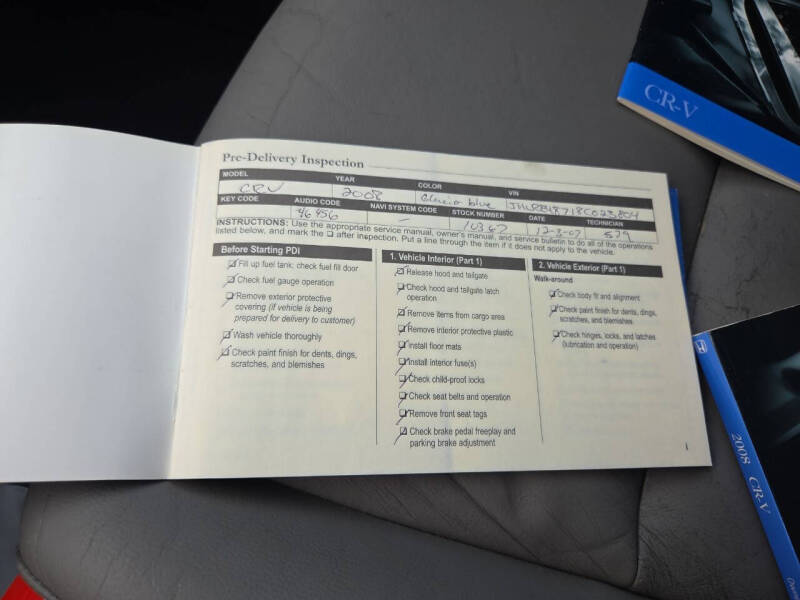 CR-V
Pre-Delivery Inspection
MODEL YEAR COLOR VIN
CRV 2008 Glacier blue
KEY CODE AUDIO CODE NAVI SYSTEM CODE STOCK NUMBER DATE TECHNICIAN
46456 — 10367 12-3-07 579
INSTRUCTIONS: Use the appropriate service manual, owner's manual, and service bulletin to do all of the operations
listed below, and mark the ❑ after inspection. Put a line through the item if it does not apply to the vehicle.
Before Starting PDI
Fill up fuel tank; check fuel fill door
Check fuel gauge operation
Remove exterior protective
covering (if vehicle is being
prepared for delivery to customer)
Wash vehicle thoroughly
Check paint finish for dents, dings,
scratches, and blemishes
1. Vehicle Interior (Part 1)
Release hood and tailgate
Check hood and tailgate latch
operation
Remove items from cargo area
Remove interior protective plastic
Install floor mats
Install interior fuse(s)
Check child-proof locks
Check seat belts and operation
Remove front seat tags
Check brake pedal freeplay and
parking brake adjustment
2. Vehicle Exterior (Part 1)
Walk-around
Check body fit and alignment
Check paint finish for dents, dings,
scratches, and blemishes
Check hinges, locks, and latches
(lubrication and operation)
i
2008 CR-V